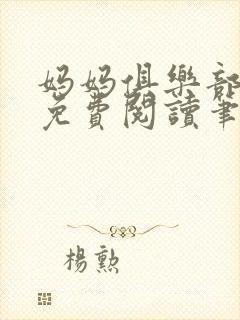 妈妈俱樂部
免費閱讀筆
楊勲